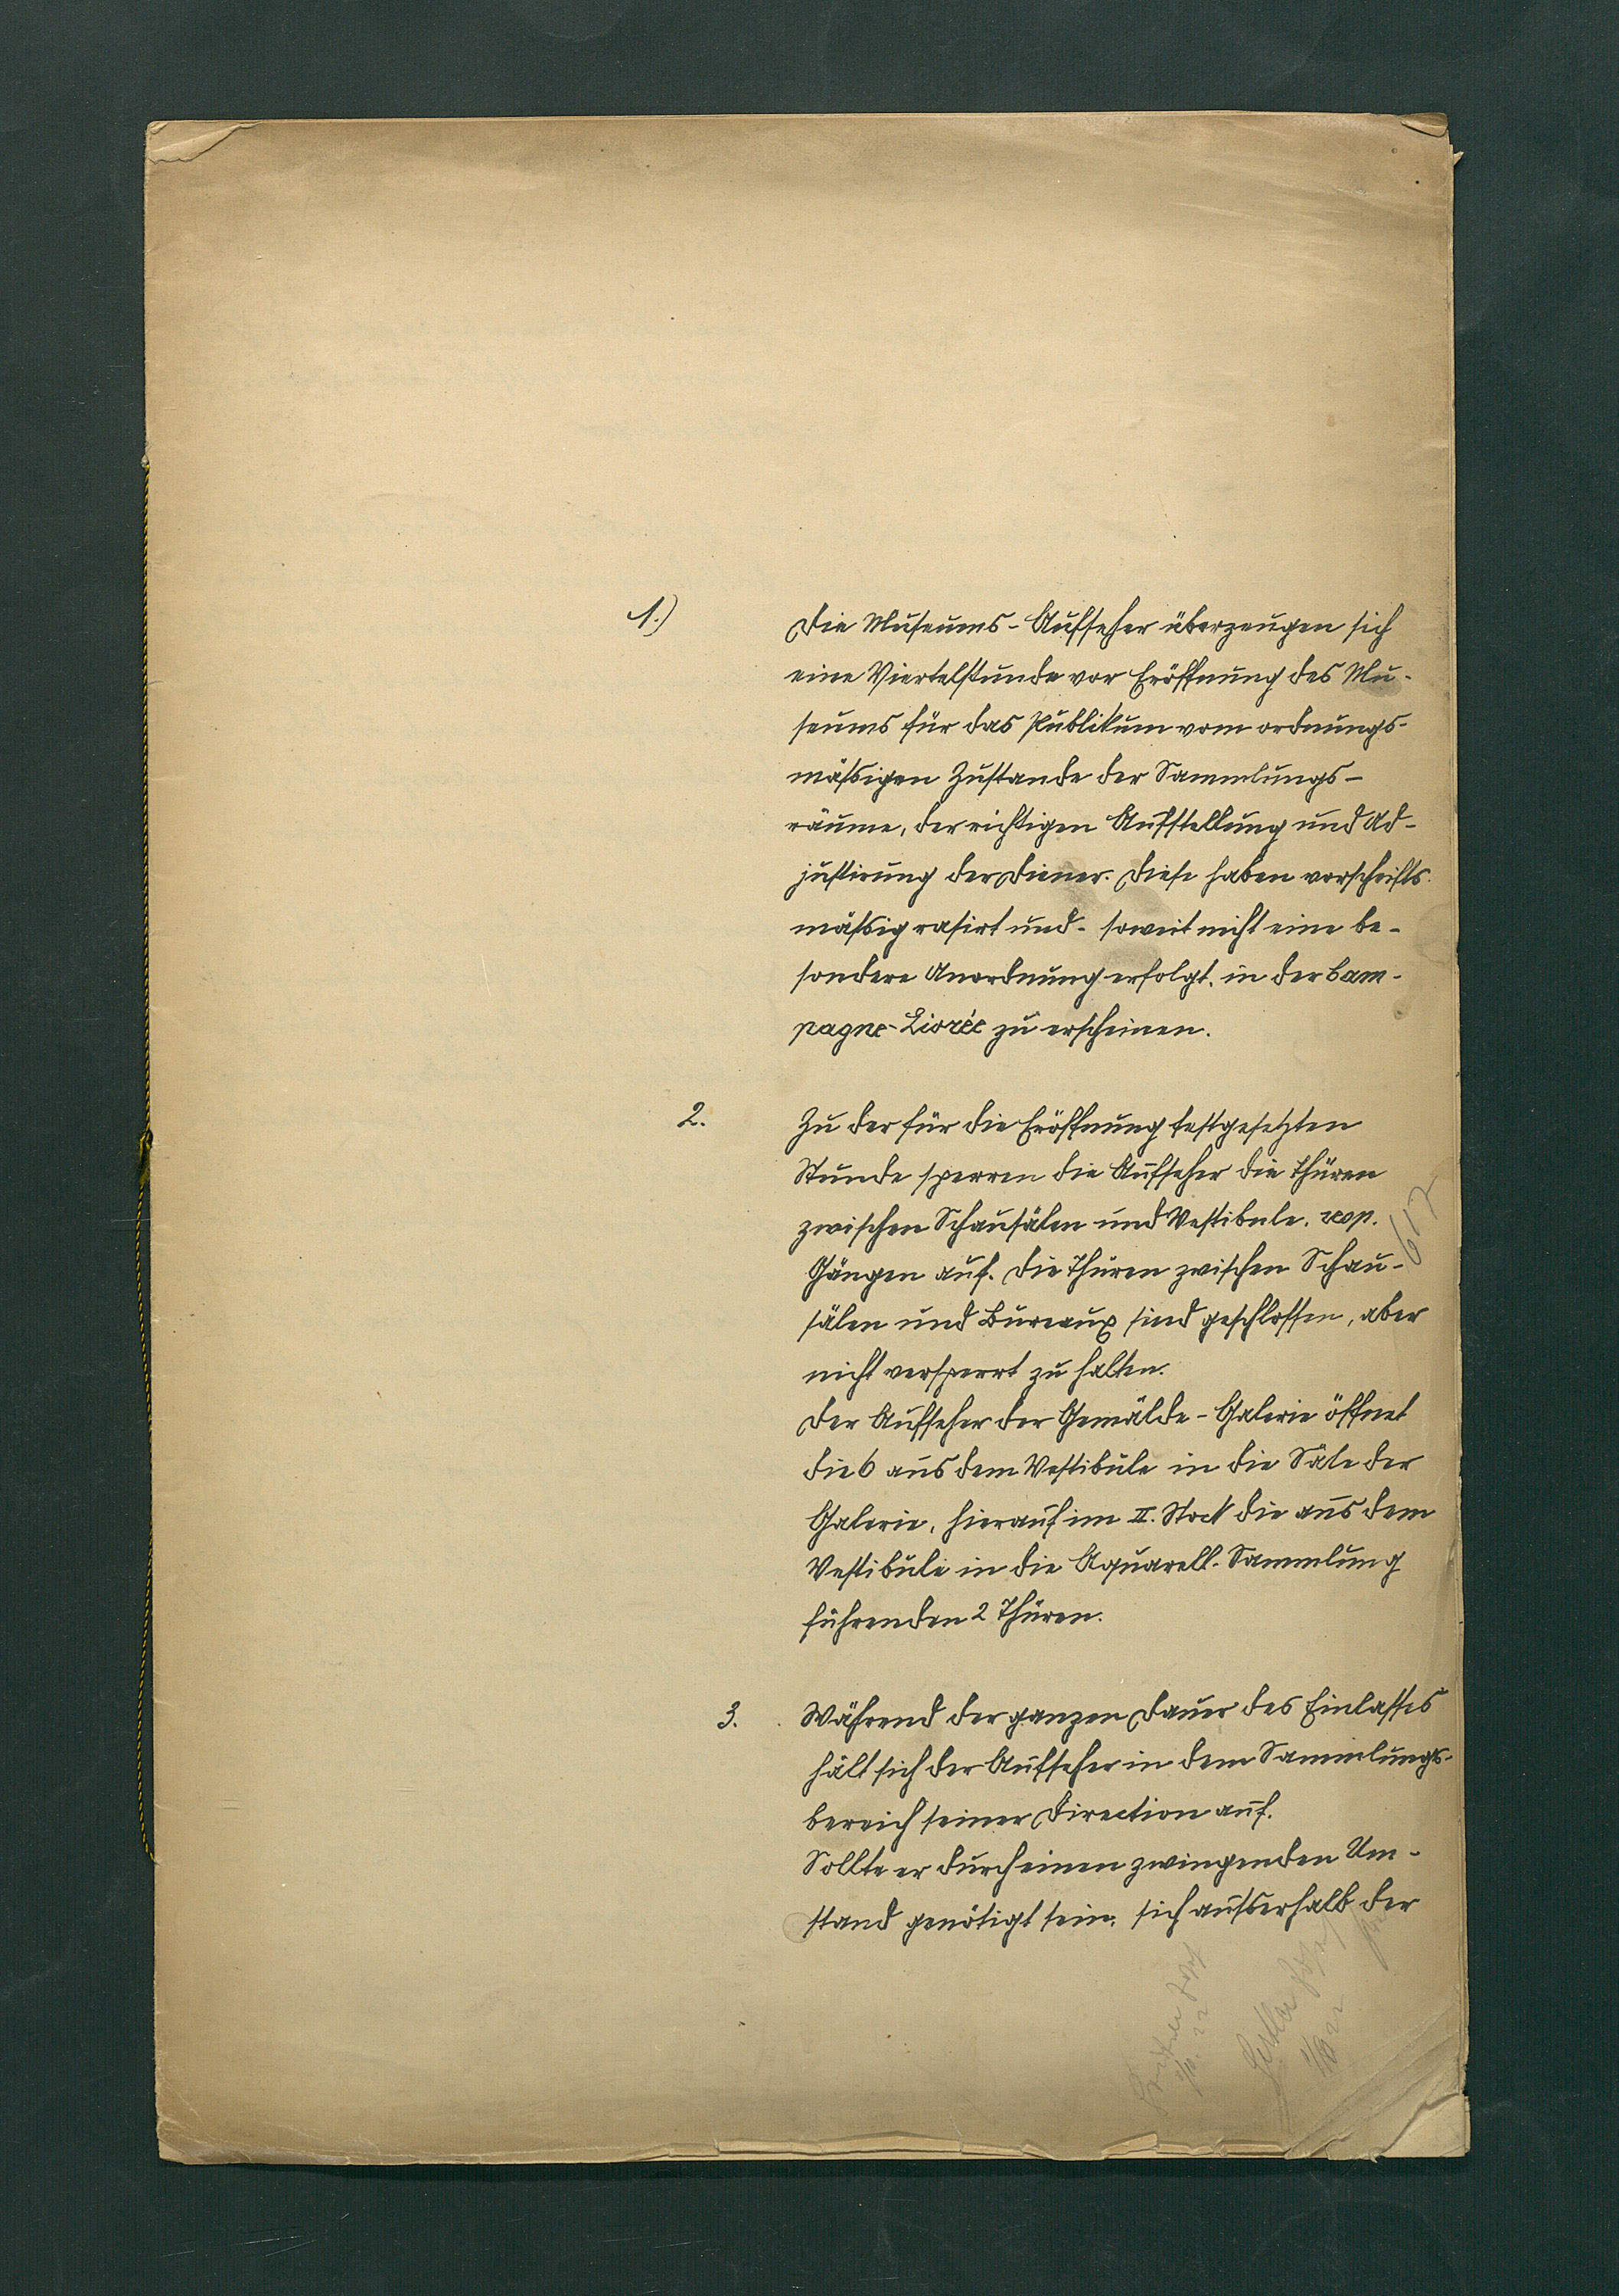 1.) Die Museums-Aufseher überzeugen sich
eine Viertelstunde vor Eröffnung des Mu-
seums für das Publikum vom ordnungs-
mäßigen Zustande der Sammlungs-
räume, der richtigen Aufstellung und Ad-
justirung der Diener. Diese haben vorschrifts-
mäßig rasirt und - soweit nicht eine be-
sondere Anordnung erfolgt, in der Cam-
pagne-Livrée zu erscheinen.
2. Zu der für die Eröffnung festgesetzten
Stunde sperren die Aufseher die Thüren
zwischen Schausälen und Vestibule, resp.
Gängen auf. Die Thüren zwischen Schau-
sälen und Bureaux sind geschlossen, aber
nicht versperrt zu halten.
Der Aufseher der Gemälde-Galerie öffnet
die 6 aus dem Vestibule in die Säle der
Galerie, hierauf im II. Stock die aus dem
Vestibule in die Aquarell-Sammlung
führenden 2 Thüren.
3. Während der ganzen Dauer des Einlasses
hält sich der Aufseher in dem Sammlungs-
bereich seiner Direction auf.
Sollte er durch einen zwingenden Um-
stand genötigt sein, sich außerhalb der
617